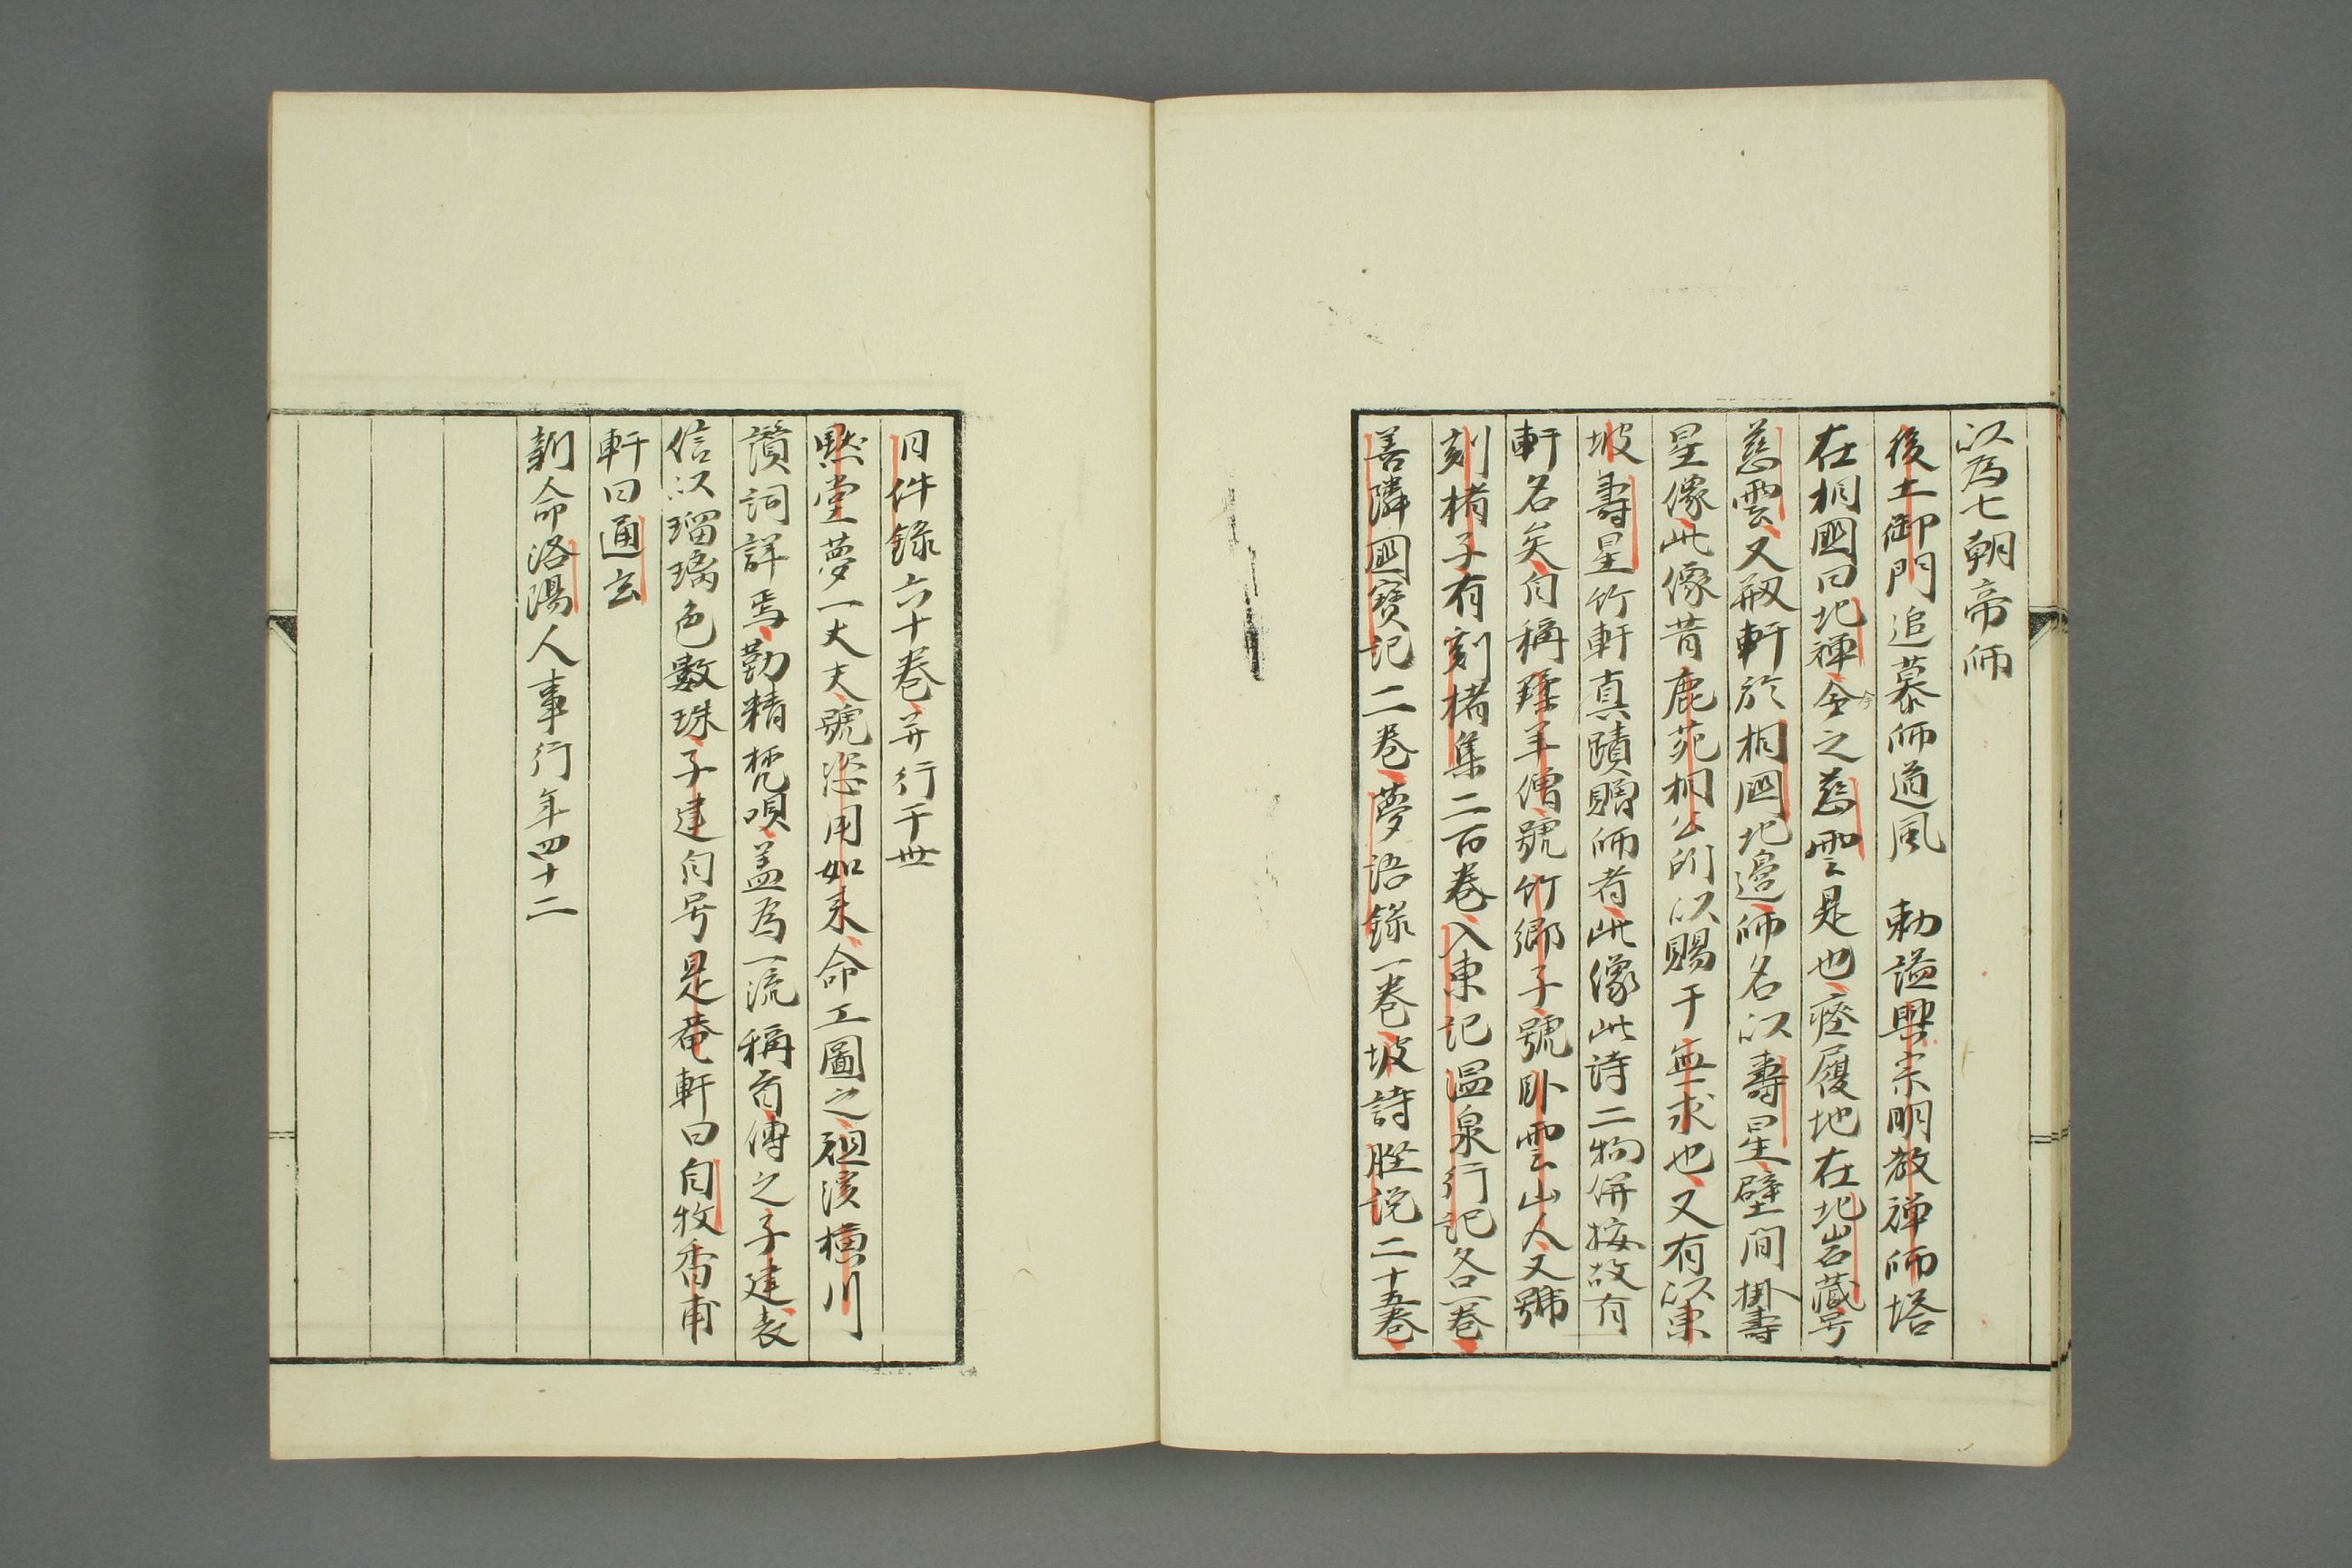 以為七朝帝師
後土御門追慕師道風　勅諡興宗明教禅師塔
在相國曰北禅今全之慈雲是也瘞履地在北岩蔵号
慈雲又刱軒於相國北邉師名以壽星壁間掛壽
星像此像昔鹿苑相公所以賜于無求也又有以東
坡壽星竹軒真蹟贈師者此像此詩二物併按故有
軒名矣自称羊僧號竹郷子號臥雲山人又號
刻楮子有刻楮集二百卷入東記温泉行記各一卷
善隣國寳記二卷夢語錄一卷坡詩脞説二十五卷
日件錄六十卷并行于世
黙堂夢一丈夫號恣用如来命工圖之祖溪横川
讃詞詳焉勤精梵唄盖為一流稱首傳之子建表
信以瑠璃色數珠子建自号是菴軒曰自牧香甫
軒曰通玄
新命洛陽人事行年四十二